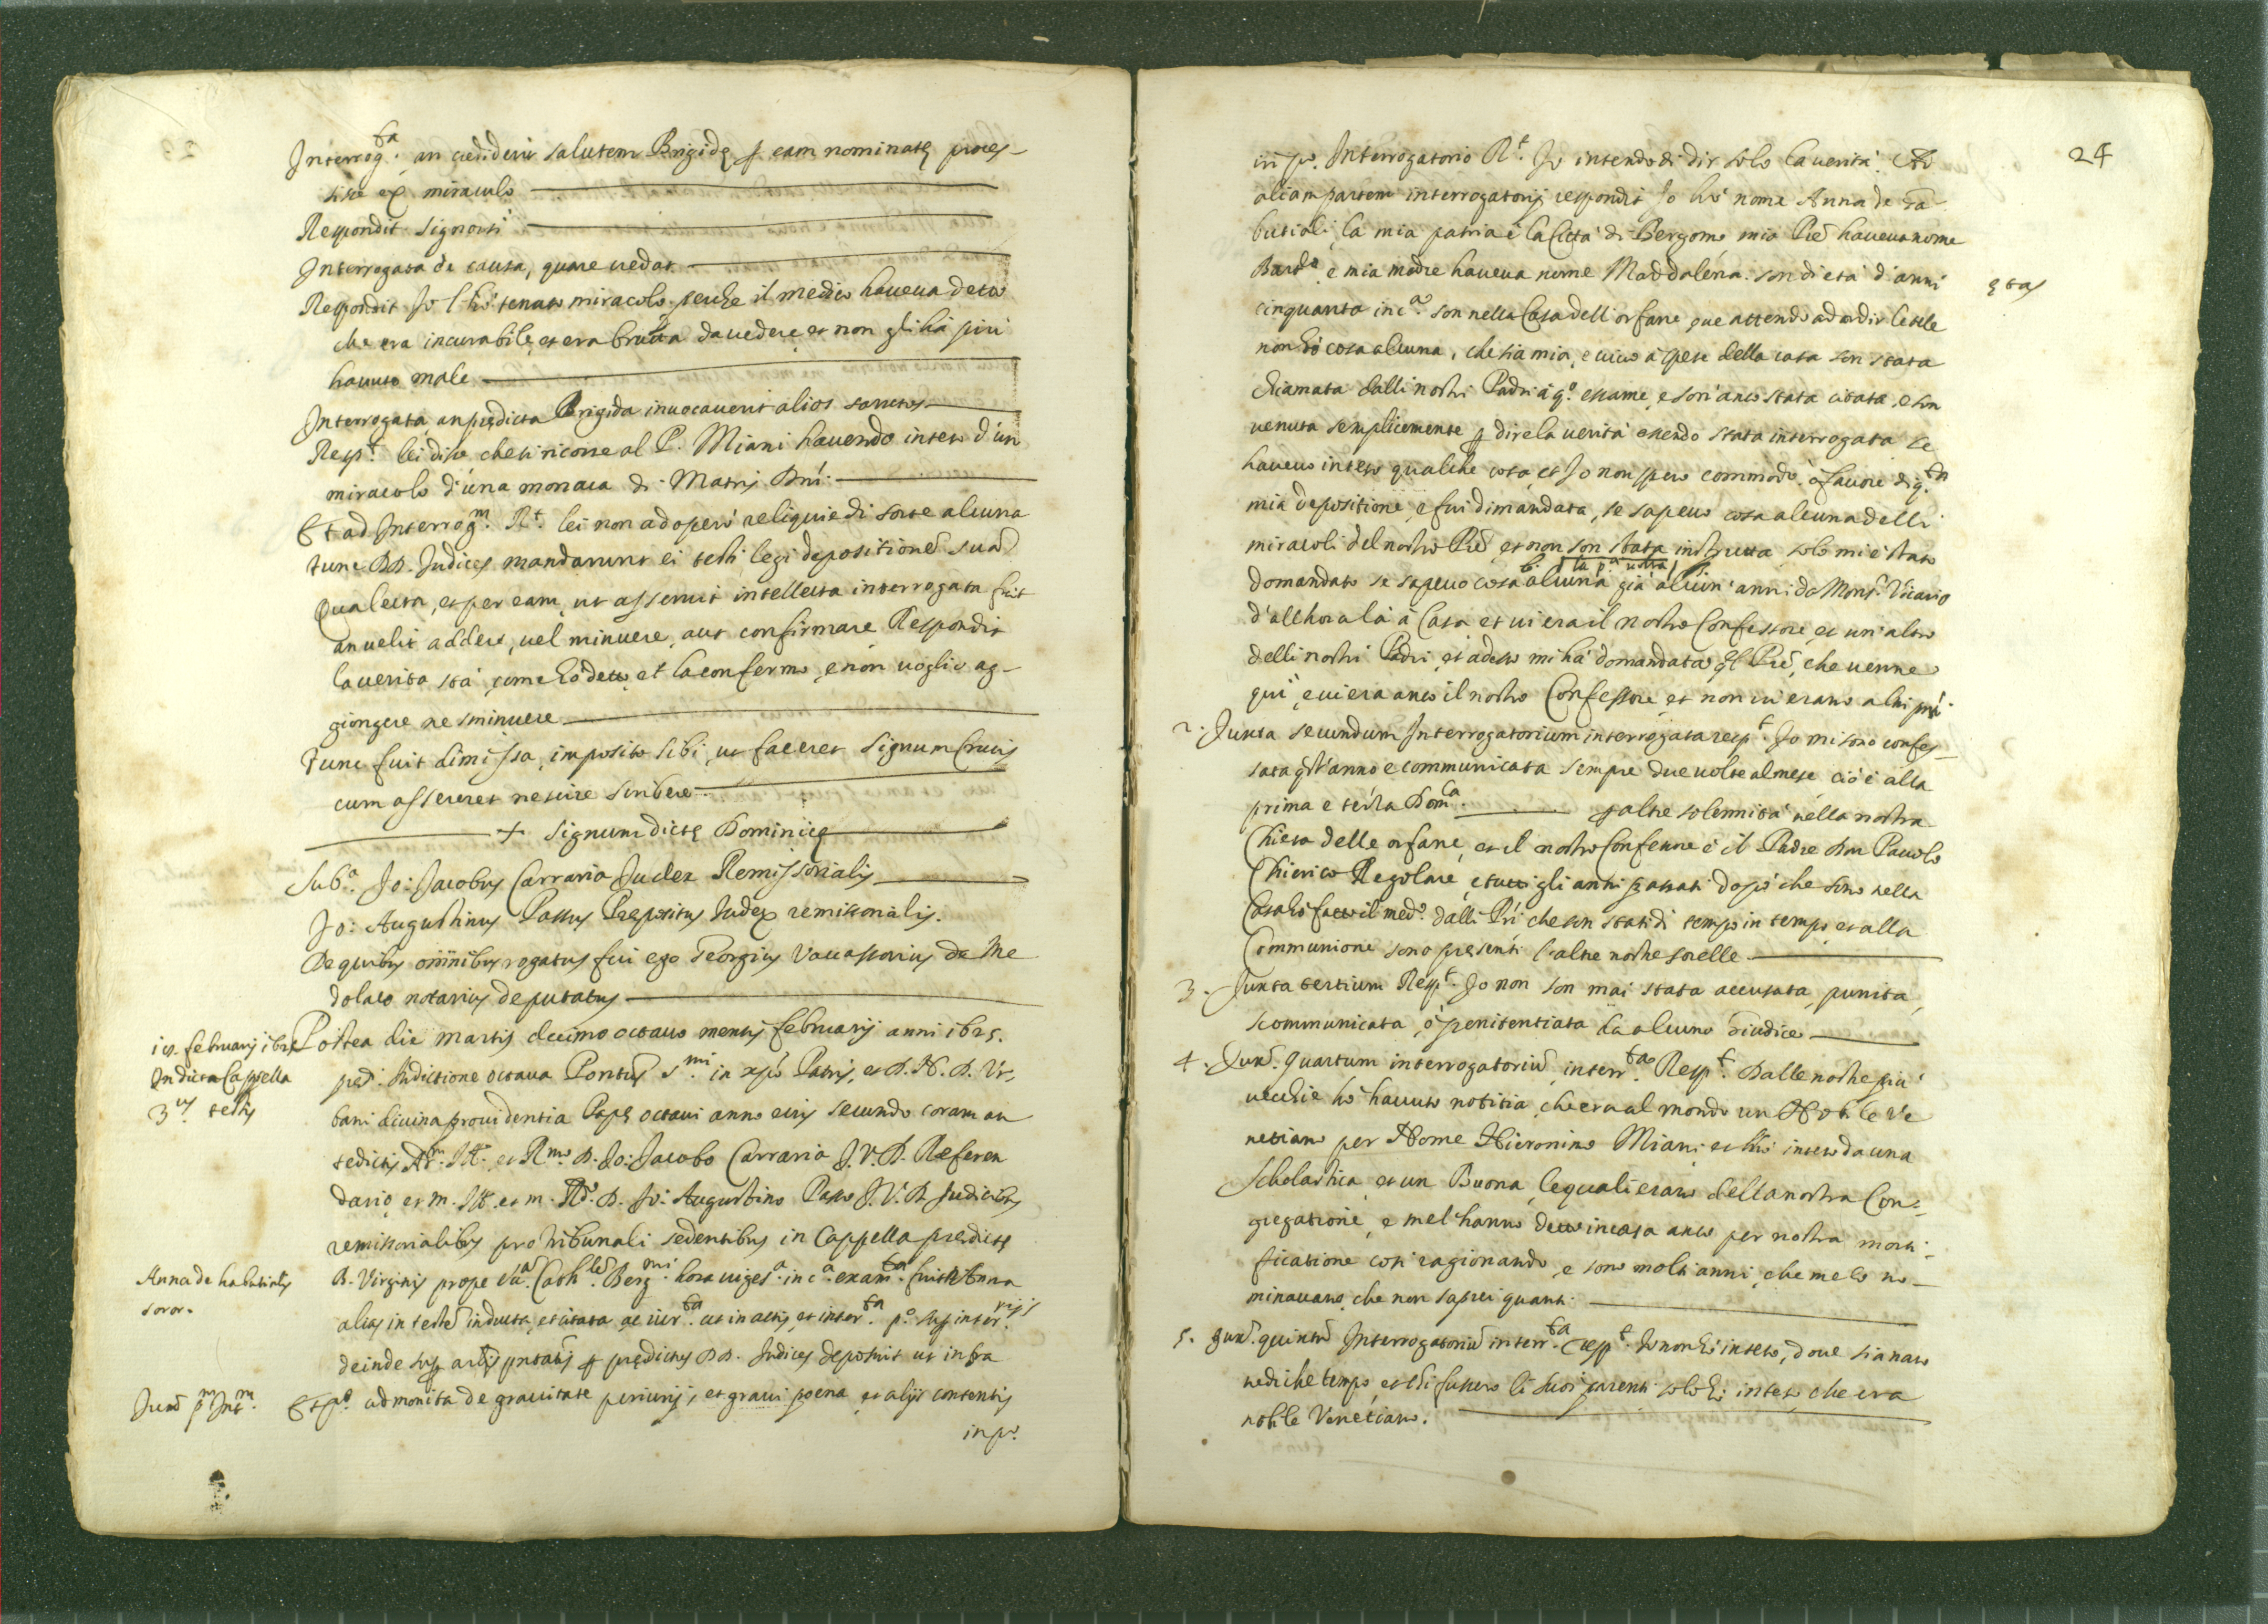 Interrog.ta an crediderit salutem Brigidę p eam nominatę proces-
sisse ex miraculo
Respondit signorsi
Interrogata de causa, quare credat
Respondit Io l'hò tenuto miracolo perche il medico haueua detto
che era incurabile, et era brutta da uedere et non gli hà più
hauuto male
Interrogata an prędicta Brigida inuocauerit alios sanctos
Resp.t lei disse che si ricorse al P. Miani hauendo inteso d'un
miracolo d'una monaca di Matris Dni.
Et ad Interrog.m R.t lei non adoperò reliquie di sorte alcuna
tunc DD. Iudices mandarunt ei testi legi depositione sua
Qua lecta, et per eam, ut asseruit intellecta interrogata fuit
an uelit addere, uel minuere, aut confirmare Respondit
la uerita stà come hò detto, et la confermo, e non uoglio ag-
giongere ne sminuere
Tunc fuit dimissa, imposito sibi, ut faceret signum Crucis
cum assereret nescire scribere
+ signum dictę Dominicę
Sub.a Io: Iacobus Carrara Iudex Remissorialis
Io: Augustinus Passus Prępositus Iudex remissorialis.
De quibus omnibus rogatus fui ego Georgius Vauassorius de Me
dolaco notarius deputatus
18. februarij 1625
In dicta Cappella
3.us testis
Postea die martis decimo octauo mensis februarij anni 1625.
pred. Indictione octaua Pontus S.mi in xpo Patris, et D. N. D. Vr-
bani diuina prouidentia Papę octaui anno eius secundo coram an
tedictis Ad.m Ill. et R.mo D. Io: Iacobo Carrara I. V. D. Referen
dario, et m. Ill. et m. R.do D. Io: Augustino Passo I. V. D. Iudicibus
remissorialibus pro tribunali sedentibus in Cappella prędictę
B. Virginis prope Cath.le Berg.mi hora uiges.a in c.a exam.ta fuit Anna
Anna de habatialis
soror.
alias in teste inducta, et citata ac iur.ta ut in actis, et inter.ta p.o sup inter.rijs
deinde sup artis pntatis p prędictos DD. Iudices deposuit ut infra
Iux p.m Int.m
Et p.o admonita de grauitate periurij, et graui poena et alijs contentis
in p.o
24
in p.o Interrogatorio R.t Io intendo di dir solo la uerità. Ad
aliam partem interrogatorij respondit Io hò nome Anna de Ta
butiali, la mia patria è la Città di Bergomo mio Pre haueua nome
Bard.o e mia madre haueua nome Maddalena. son di età d'anni
ętas
cinquanta in c.a son nella Casa dell'orfane, oue attendo ad ordir le tele
non hò cosa alcuna, che sia mia, e uiuo à spese della casa son stata
chiamata dalli nostri Padri à q.o essame, e son anco stata citata, e son
uenuta semplicemente p dire la uerità essendo stata interrogata se
haueuo inteso qualche cosa, et Io non spero commodo, ò fauore di q.ta
mia depositione, e fui dimandata, se sapeuo cosa alcuna delli
miracoli del nostro Pre, et non son stata instrutta solo mi è stato
la p.a uolta
domandato se sapeuo cosa alcuna già alcun' anni da Mons.r Vicario
d'allhora là à Casa et ui era il nostro Confessore, et un'altro
delli nostri Padri, et adesso mi hà domandato ql Pre, che uenne
qui, e ui era anco il nostro Confessore, et non ui erano altri pnti.
2. Iuxta secundum Interrogatorium interrogata resp.t Io mi sono confes-
sata qst'anno e communicata sempre due uolte al mese, ciò è alla
prima e terza Dom.ca p altre solennità nella nostra
Chiesa delle orfane, et il nostro Confessore è il Padre Don Pauolo
Chierico Regolare, e tutti gli anni passati dopò che sono nella
Casa hò fatto il med.o dalli Pri che son stati di tempo in tempo, et alla
Communione sono presenti l'altre nostre sorelle
3. Iuxta tertium Resp.t Io non son mai stata accusata, punita,
scommunicata, ò penitentiata da alcuno Giudice
4. Iux. quartum interrogatoriu, interr.ta Resp.t Dalle nostre più
uecchie hò hauuto notitia, che era al mondo un Nobile Ve
netiano per Nome Hieronimo Miani et hò inteso da una
Scholastica, et un Buona, le quali erano della nostra Con-
gregatione, e mel'hanno detto in casa anco per nostra morti-
ficatione così ragionando, e sono molti anni, che me lo no-
minauano, che non saprei quanti.
5. Iux. quintu Interrogatoriu interr.ta resp.t Io non hò inteso, doue sia nato
ne di che tempo, et chi fussero li suoi parenti solo hò inteso, che era
nobile Venetiano.